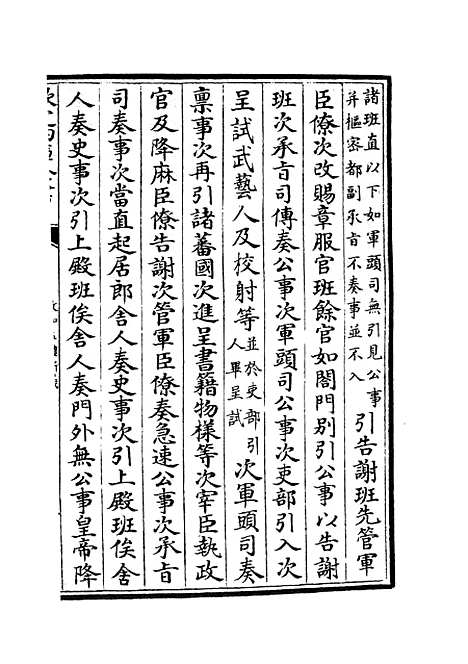 諸班直以下如軍頭司無引見公事
并樞密都副承旨不奏事並不入
引告謝班先管軍
臣僚次改賜章服官班餘官如閤門別引公事以告謝
班次承旨司傳奏公事次軍頭司公事次吏部引入次
呈試武藝人及校射等
並於吏部引
人畢呈試
次軍頭司奏
稟事次再引諸蕃國次進呈書籍物樣等次宰臣執政
官及降麻臣僚告謝次管軍臣僚奏急速公事次承旨
司奏事次當直起居郎舍人奏史事次引上殿班俟舍
人奏史事次引上殿班俟舍人奏門外無公事皇帝降